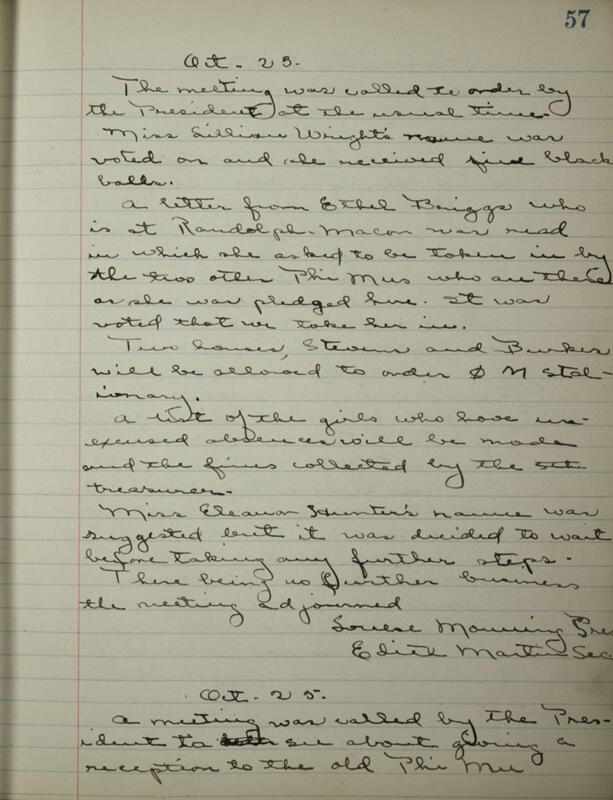 57
Oct. 25.
The meeting was called to order by
the President at the usual time.
Miss Lillian Wright's name was
voted on and she received five black
balls.
A letter from Ethel Briggs who
is at Randolph-Macon was read
in which she asked to be taken in by
the two other Phi Mus who are there
as she was pledged here. It was
voted that we take her in.
Two houses, Stevens and Burkes
will be allowed to order Φ M stat-
ionary.
A list of the girls who have un-
excused absences will be made
and the fines collected by the
treasurer.
Miss Eleanor Hunter's name was
suggested but it was decided to wait
before taking any further steps.
There being no further business
the meeting adjourned
Louise Manning Pre
Edith Martin Sec
Oct. 25.
A meeting was called by the Pres-
ident to see about giving a
reception to the old Phi Mu